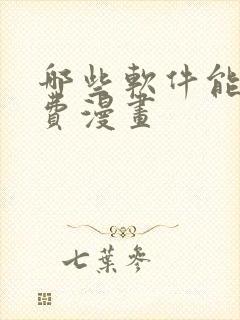 哪些軟件能
費漫畫
七葉參